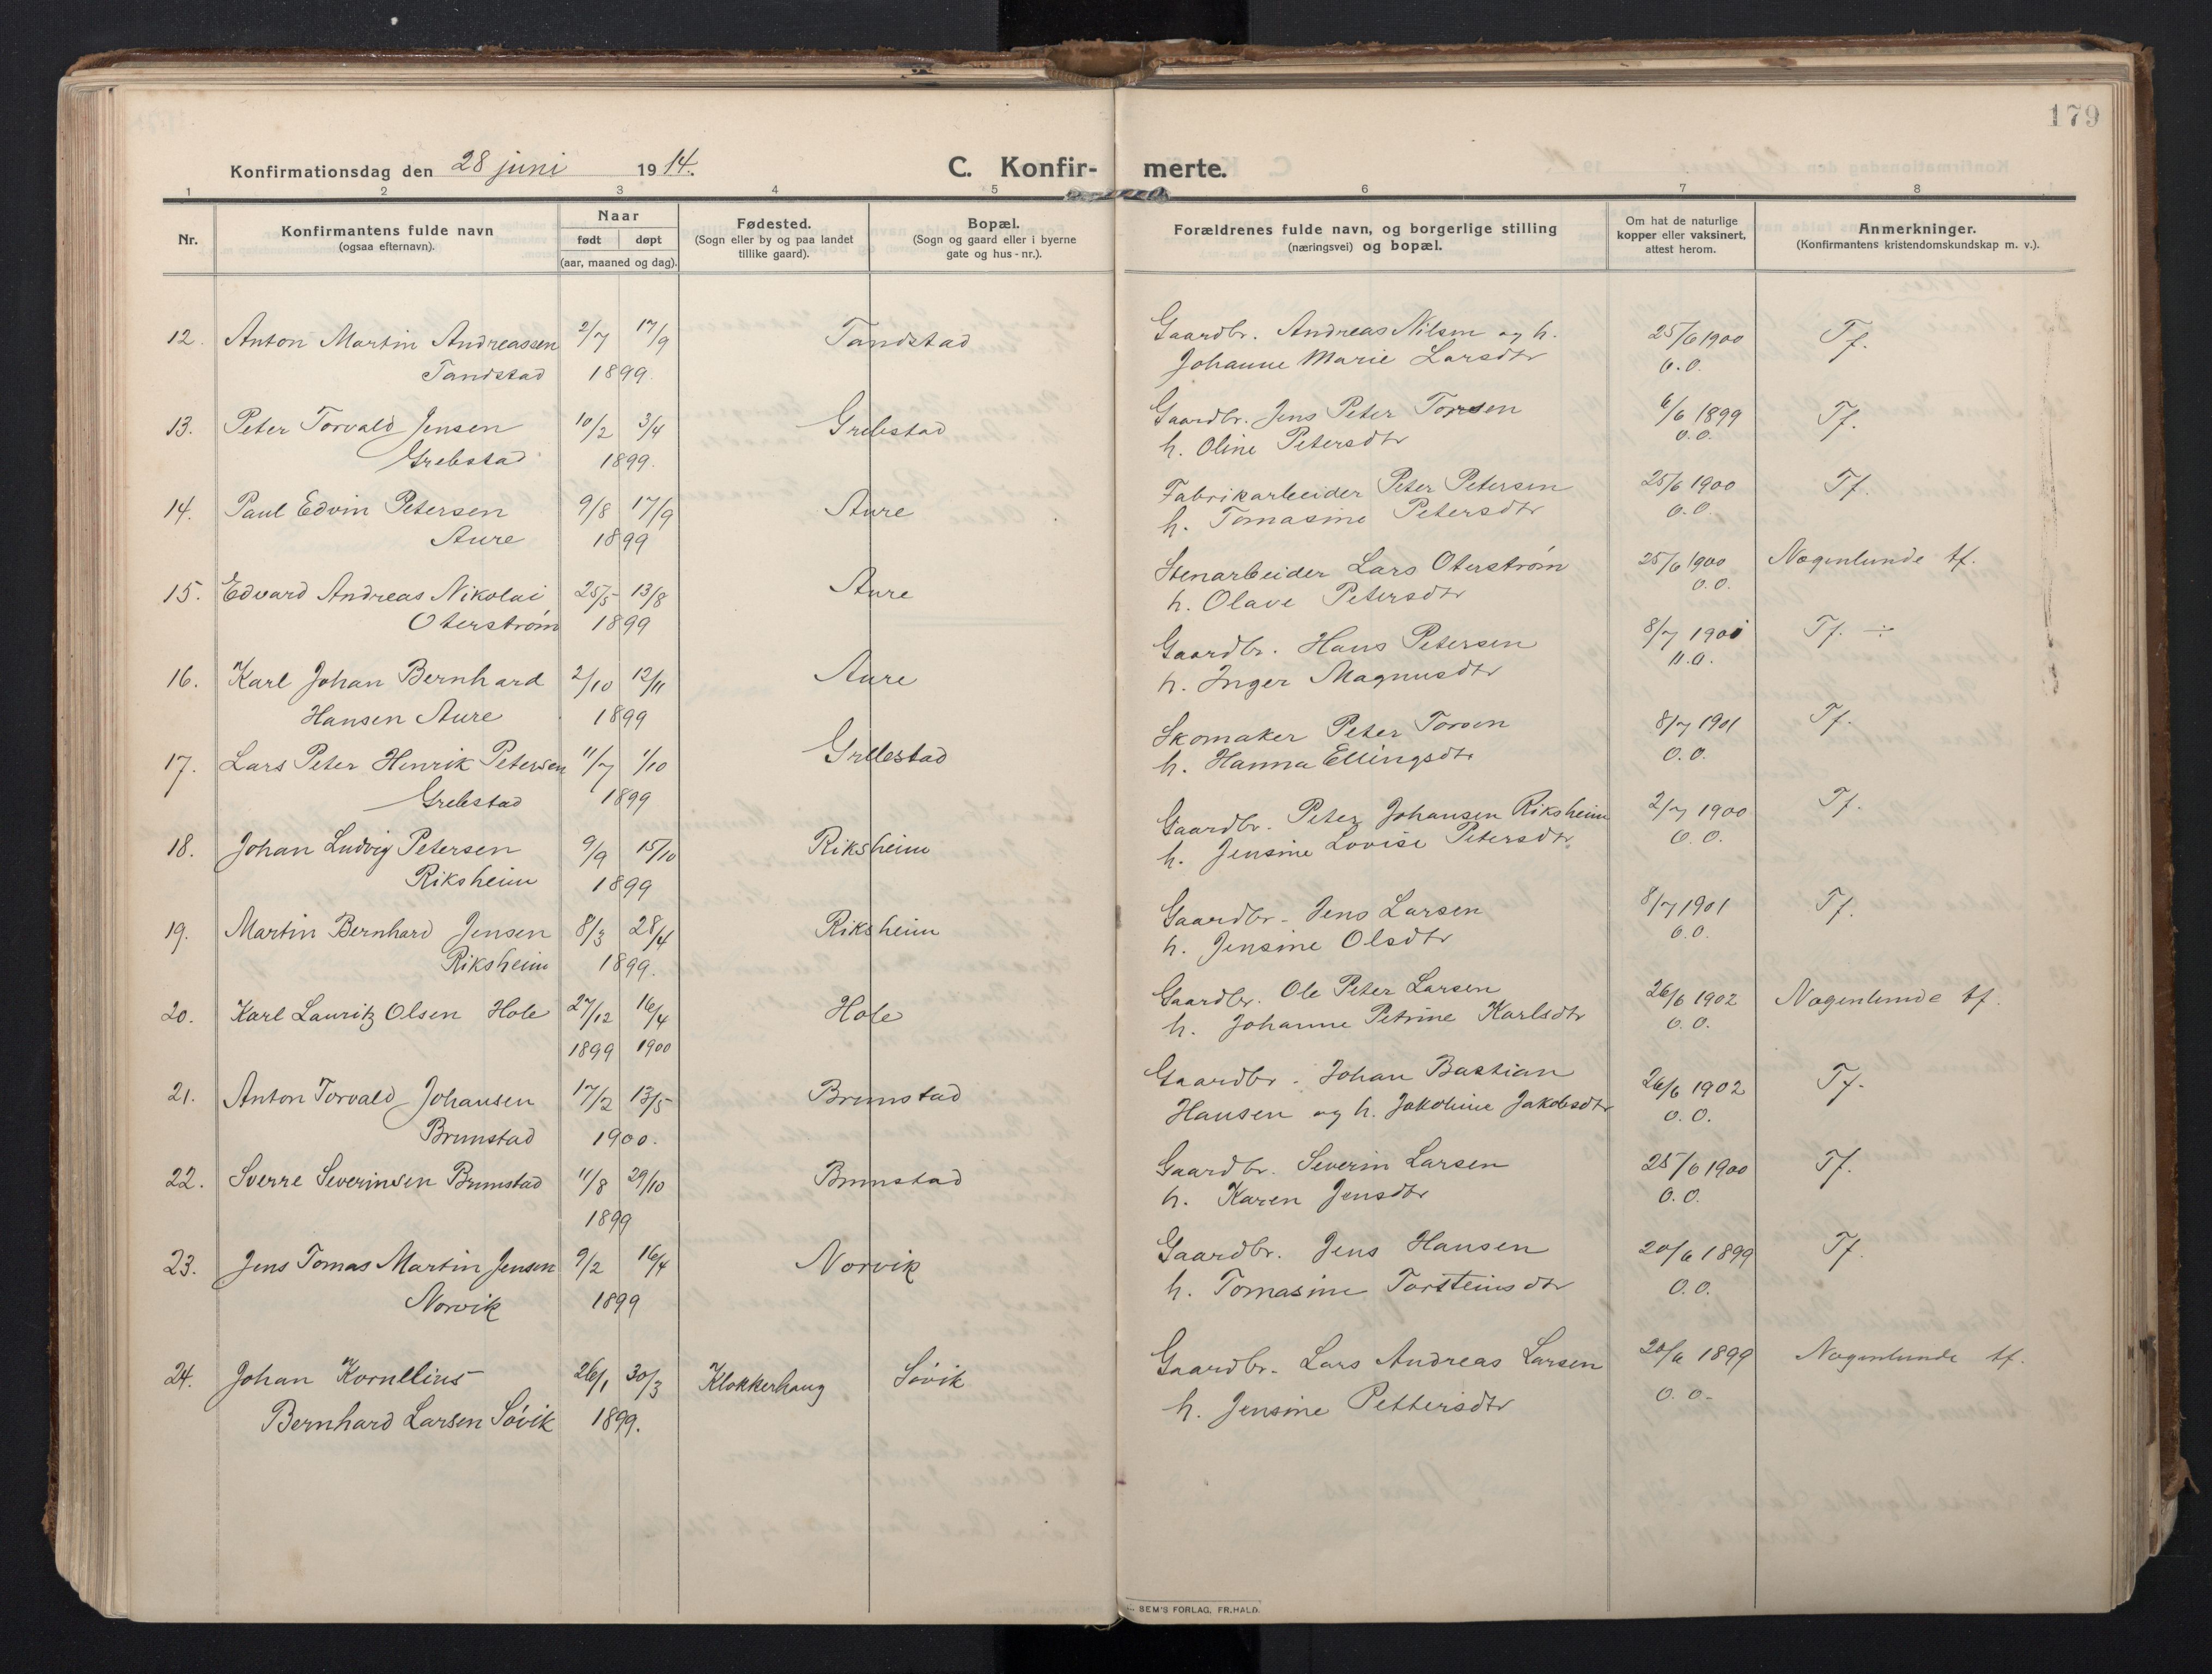 179
Konfirmationsdag den 28 juni 1914.
C. Konfir- merte.
1 2 3 4 5 6 7 8
Nr.
Konfirmantens fulde navn
(ogsaa efternavn).
Naar
født døpt
(aar, maaned og dag).
Fødested.
(Sogn eller by og paa landet
tillike gaard).
Bopæl.
(Sogn og gaard eller i byerne
gate og hus-nr.).
Forældrenes fulde navn, og borgerlige stilling
(næringsvei) og bopæl.
Om hat de naturlige
kopper eller vaksinert,
attest herom.
Anmerkninger.
(Konfirmantens kristendomskundskap m. v.).
12. Anton Martin Andreassen 2/7 17/9 Tandstad Gaardbr. Andreas Nilsen og h. 25/6 1900 Tf.
Tandstad 1899. Johanne Marie Larsdtr O.O.
13. Peter Torvald Jensen 10/2 3/4 Grebstad Gaardbr. Jens Peter Torsen 6/6 1899 Tf.
Grebstad 1899. h. Oline Petersdtr O.O.
14. Paul Edvin Petersen 9/8 17/9 Aure Fabrikarbeider Peter Petersen 25/6 1900 Tf.
Aure 1899 h. Tomasine Petersdtr O.O.
15. Edvard Andreas Nikolai 25/5 13/8 Aure Stenarbeider Lars Oterstrøm 25/6 1900 Nogenlunde tf.
Oterstrøm 1899 h. Olave Petersdtr O.O.
16. Karl Johan Bernhard 2/10 12/11 Aure Gaardbr. Hans Petersen 8/7 1901 Tf. ÷
Hansen Aure 1899 h. Inger Magnusdtr O.O.
17. Lars Peter Henrik Petersen 11/7 1/10 Grebstad Skomaker Peter Torsen 8/7 1901 Tf.
Grebstad 1899 h. Hanna Ellingsdtr O.O.
18. Johan Ludvig Petersen 9/9 15/10 Riksheim Gaardbr. Peter Johansen Riksheim 2/7 1900 Tf.
Riksheim 1899 h. Jensine Lovise Petersdtr O.O.
19. Martin Bernhard Jensen 8/3 28/4 Riksheim Gaardbr. Jens Larsen 8/7 1901 Tf.
Riksheim 1899. h. Jensine Olsdtr O.O.
20. Karl Lauritz Olsen Hole 27/12 16/4 Hole Gaardbr. Ole Peter Larsen 26/6 1902 Nogenlunde tf.
1899 1900 h. Johanne Petrine Karlsdtr O.O.
21. Anton Torvald Johansen 17/2 13/5 Brunstad Gaardbr. Johan Bastian 26/6 1902 Tf.
Brunstad 1900. Hansen og h. Jakobine Jakobsdtr O.O.
22. Sverre Severinsen Brunstad 11/8 29/10 Brunstad Gaardbr. Severin Larsen 25/6 1900 Tf.
1899 h. Karen Jensdtr O.O.
23. Jens Tomas Martin Jensen 9/2 16/4 Norvik Gaardbr. Jens Hansen 20/6 1899 Tf.
Norvik 1899 h. Tomasine Torsteinsdtr O.O.
24. Johan Kornelius 26/1 30/3 Klokkerhaug Søvik Gaardbr. Lars Andreas Larsen 20/6 1899 Nogenlunde tf.
Bernhard Larsen Søvik 1899. h. Jensine Pettersdtr O.O.
SEM'S FORLAG, FR. HALD.